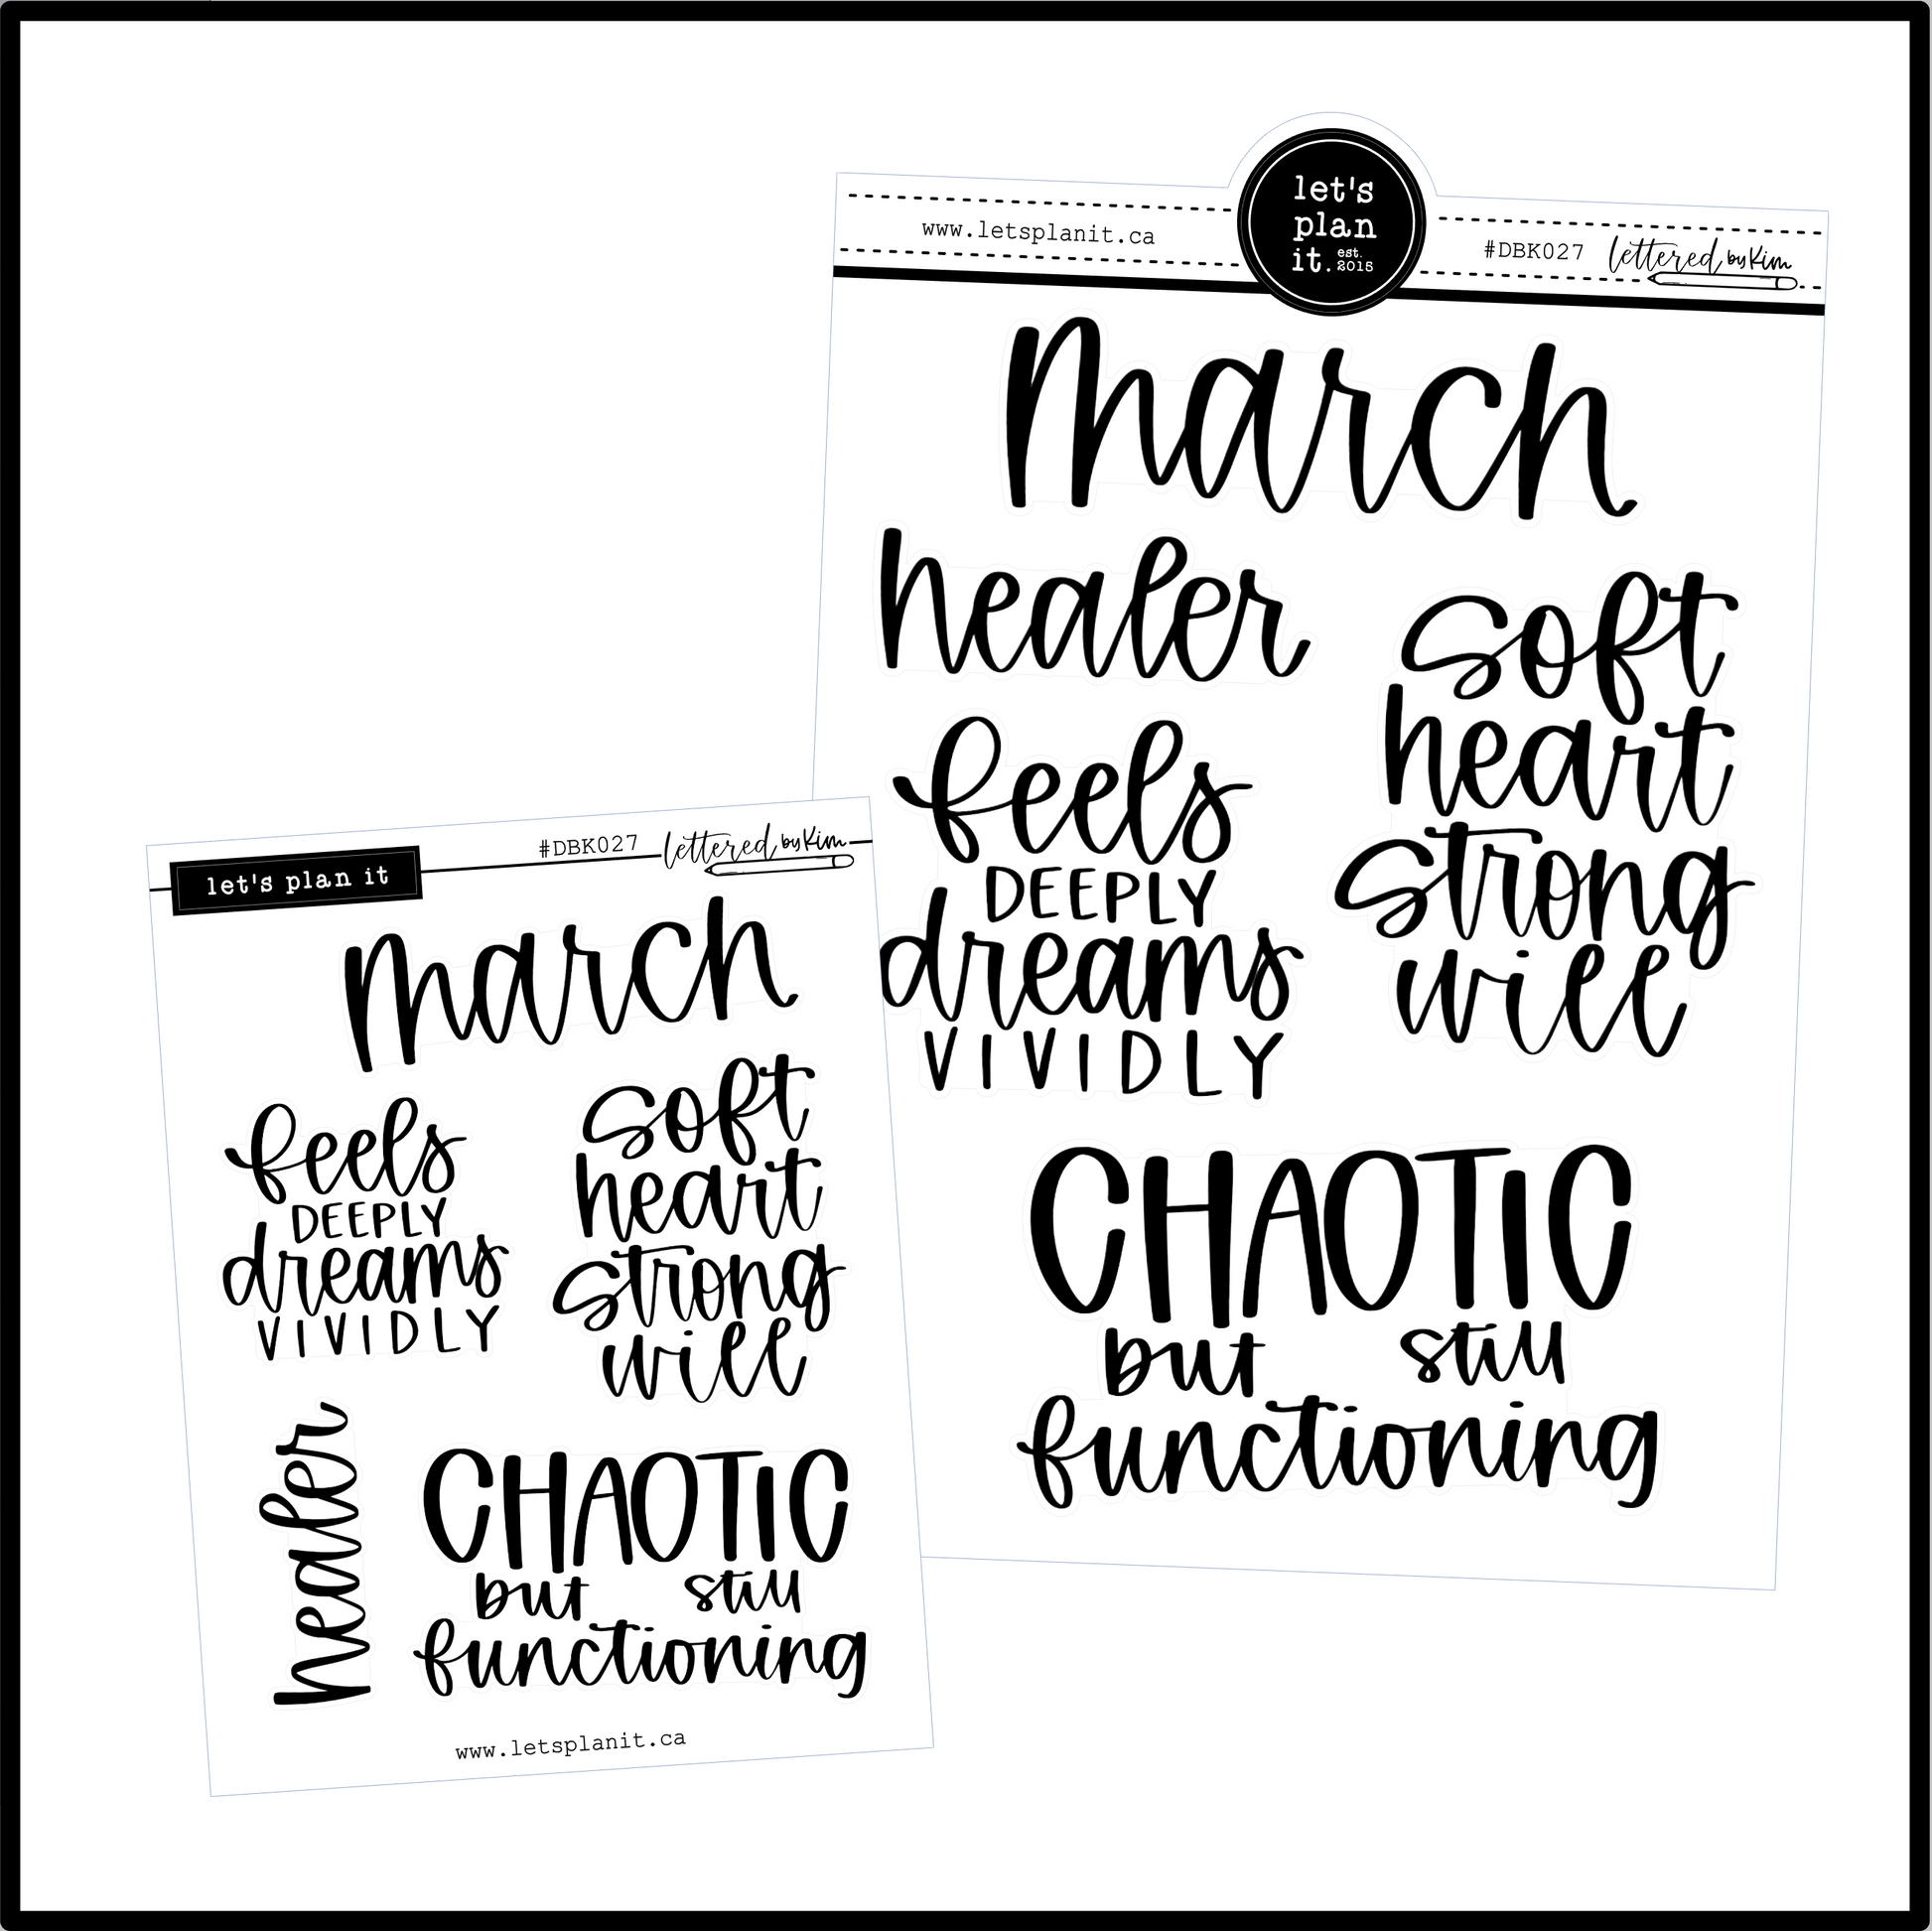 let's
plan
it. est. 2015
www.letsplanit.ca
#DBK027 lettered by Kim
March
healer
soft
heart
strong
will
feels
DEEPLY
dreams
VIVIDLY
CHAOTIC
but still
functioning
let's plan it
#DBK027 lettered by Kim
March
feels
DEEPLY
dreams
VIVIDLY
soft
heart
strong
will
healer
CHAOTIC
but still
functioning
www.letsplanit.ca